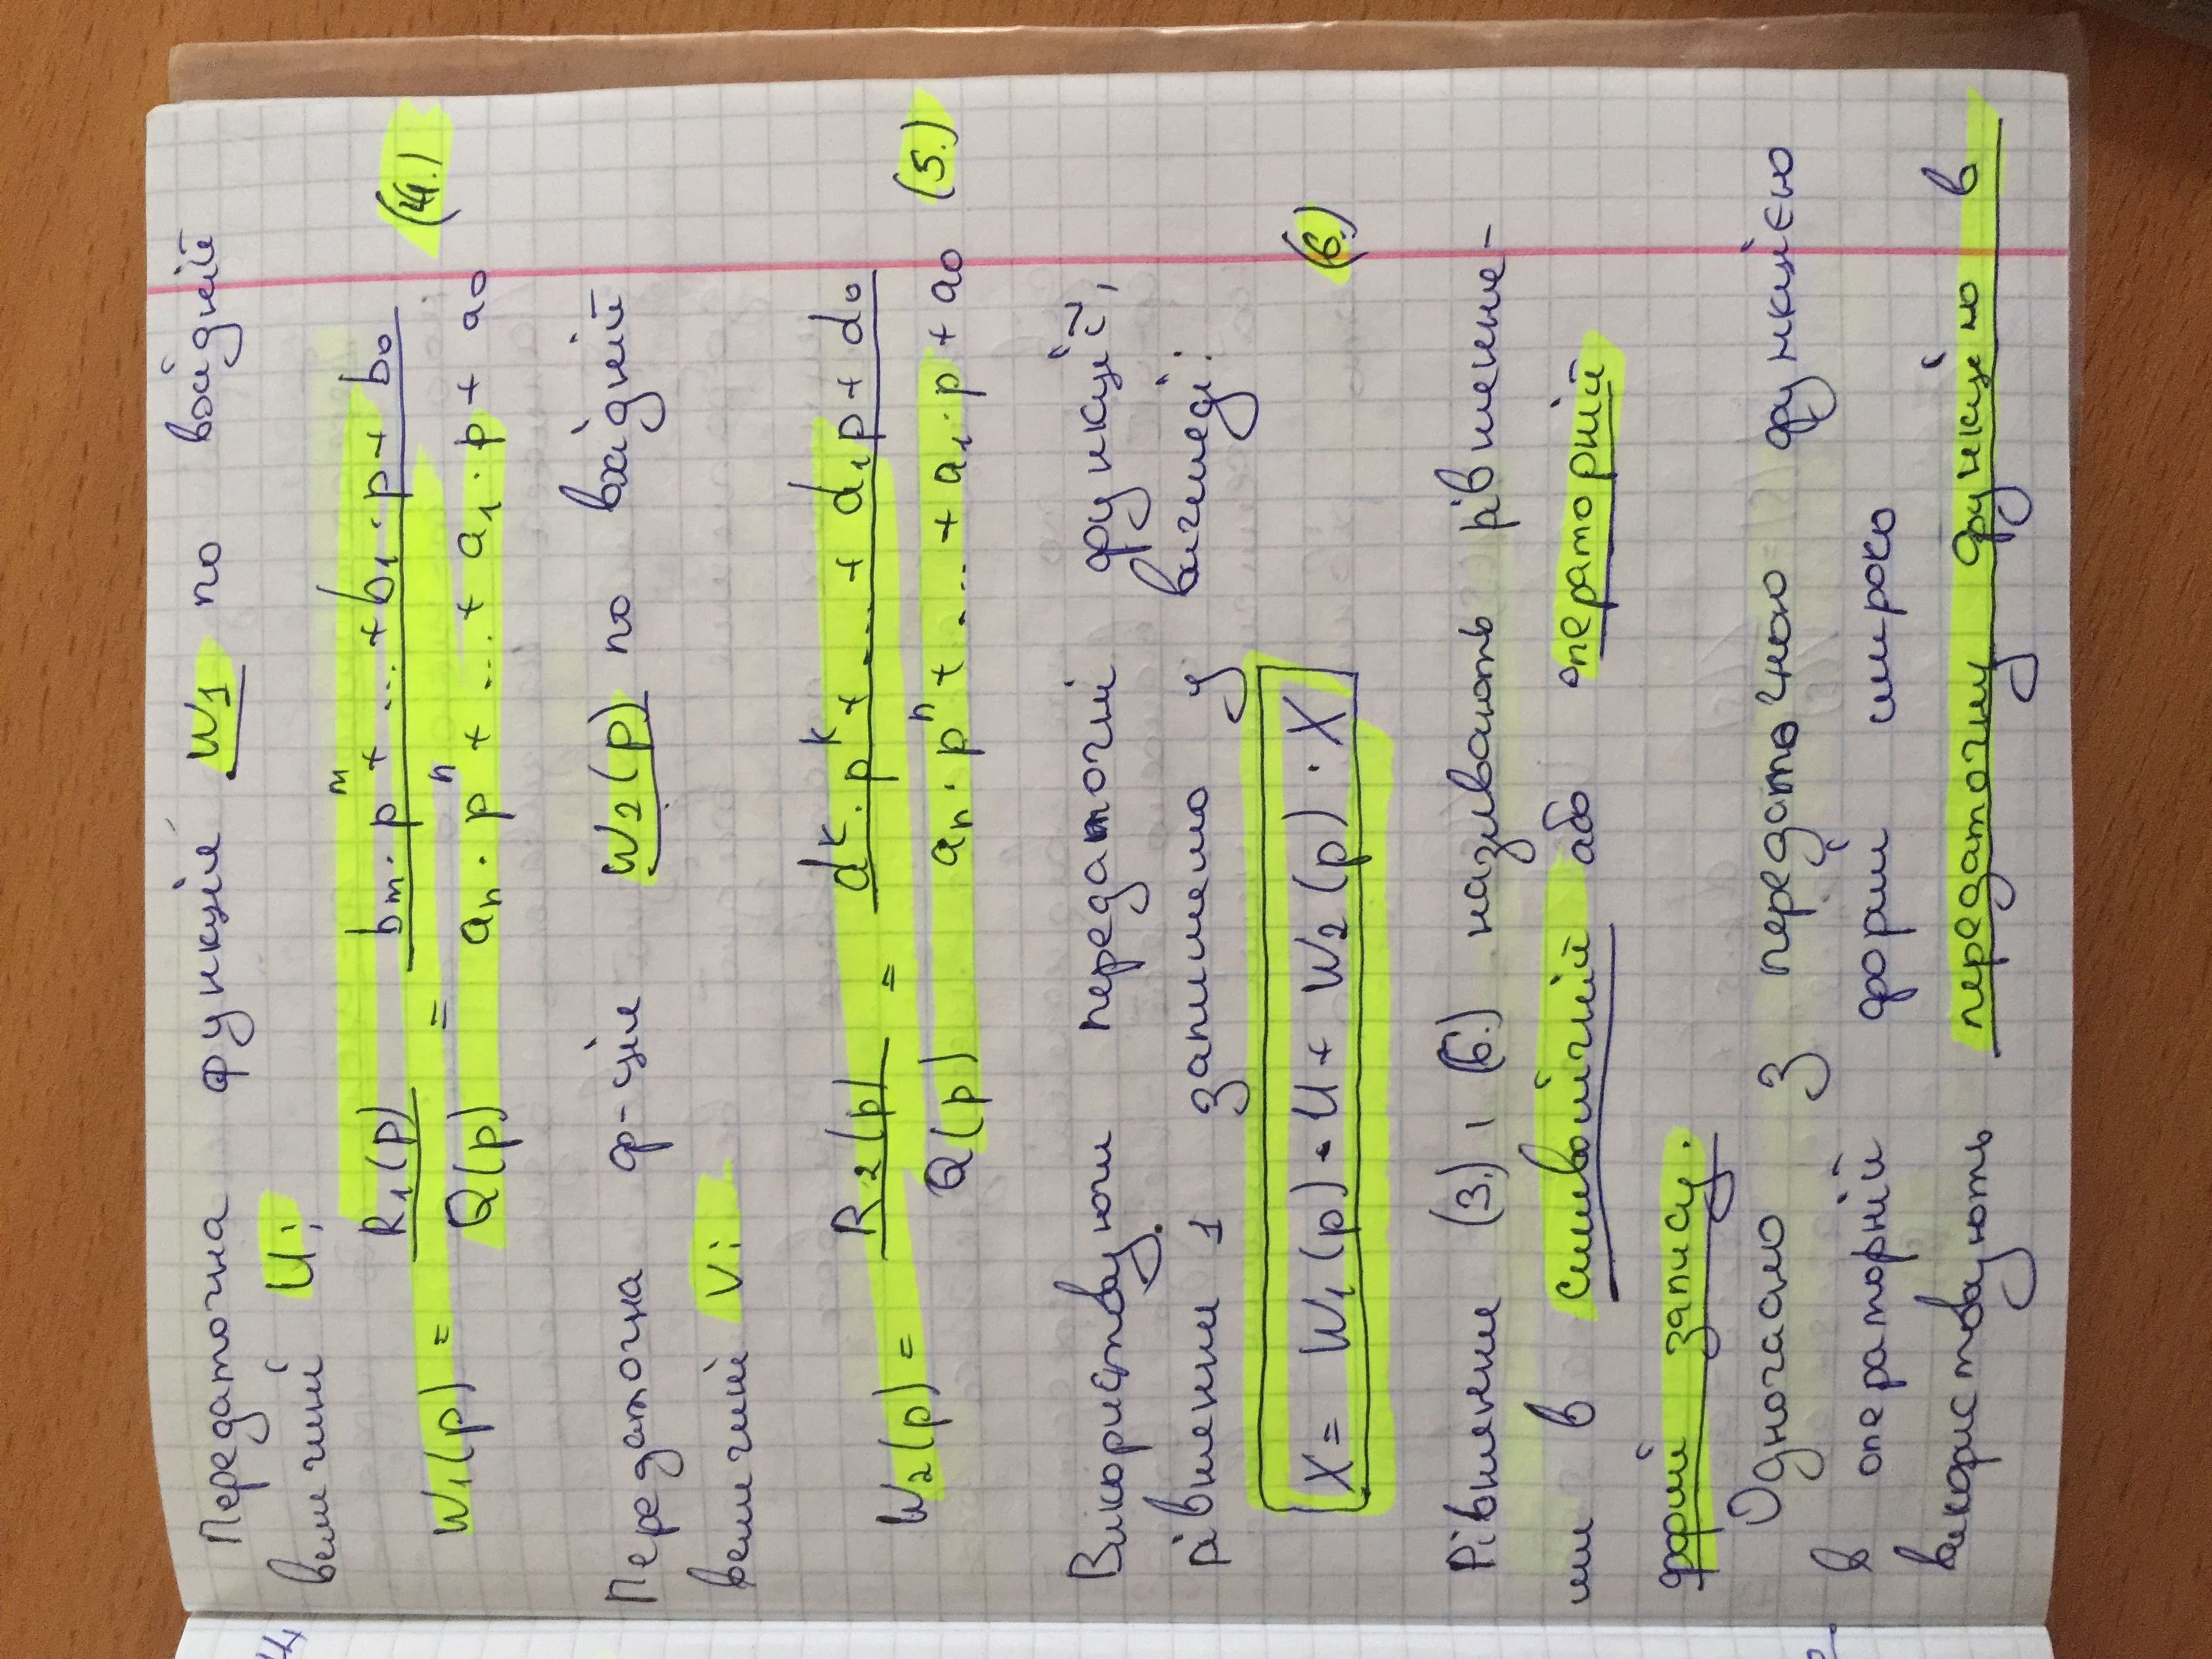 Передаточна функція W1 по вхідній
величині Ui
W1(p) = R1(p) / Q(p) = bm · p^m + ... + b1 · p + b0 / an · p^n + ... + a1 · p + a0 (4.)
Передаточна ф-ція W2(p) по вхідній
величині Vi
W2(p) = R2(p) / Q(p) = d^k · p^k + ... + d1p + d0 / an · p^n + ... + a1 · p + a0 (5.)
Використовуючи передаточні функції,
рівняння 1 запишемо у вигляді:
X = W1(p) · U + W2(p) · X (6.)
Рівняння (3.) і (6.) називають рівняння-
ми в символічній або операторній
формі запису.
Одночасно з передаточною функцією
в операторній формі широко
використовують передаточну функцію в